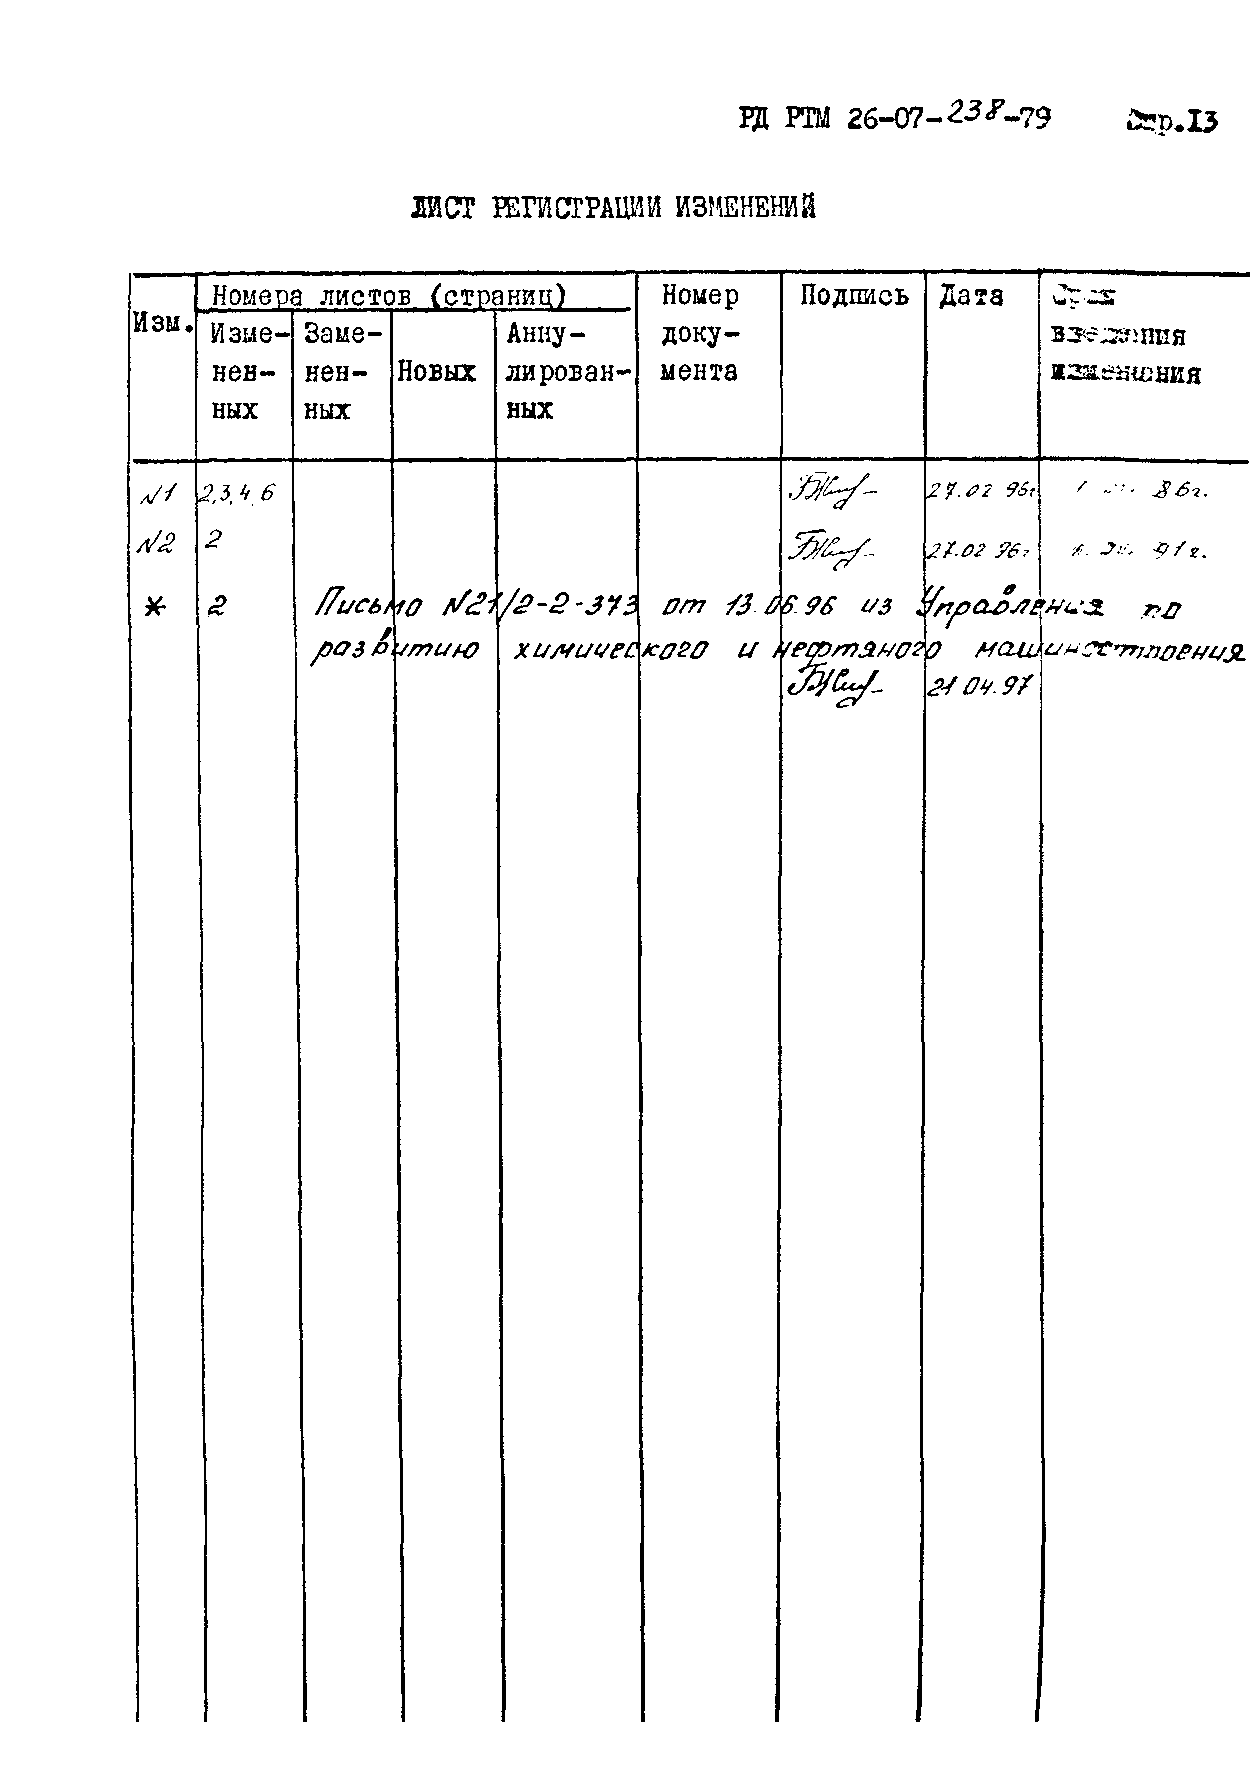 РД РТМ 26-07-238-79 Стр.13
ЛИСТ РЕГИСТРАЦИИ ИЗМЕНЕНИЙ
Изм.
Номера листов (страниц)
Изме-
нен-
ных
Заме-
нен-
ных
Новых
Анну-
лирован-
ных
Номер
доку-
мента
Подпись
Дата
Срок
введения
изменения
N1 2,3,4,6 27.02 96г 86г.
N2 2 27.02 96г 91г.
* 2 Письмо N21/2-2-373 от 13.06.96 из Управления по
развитию химического и нефтяного машиностроения
21 04.97